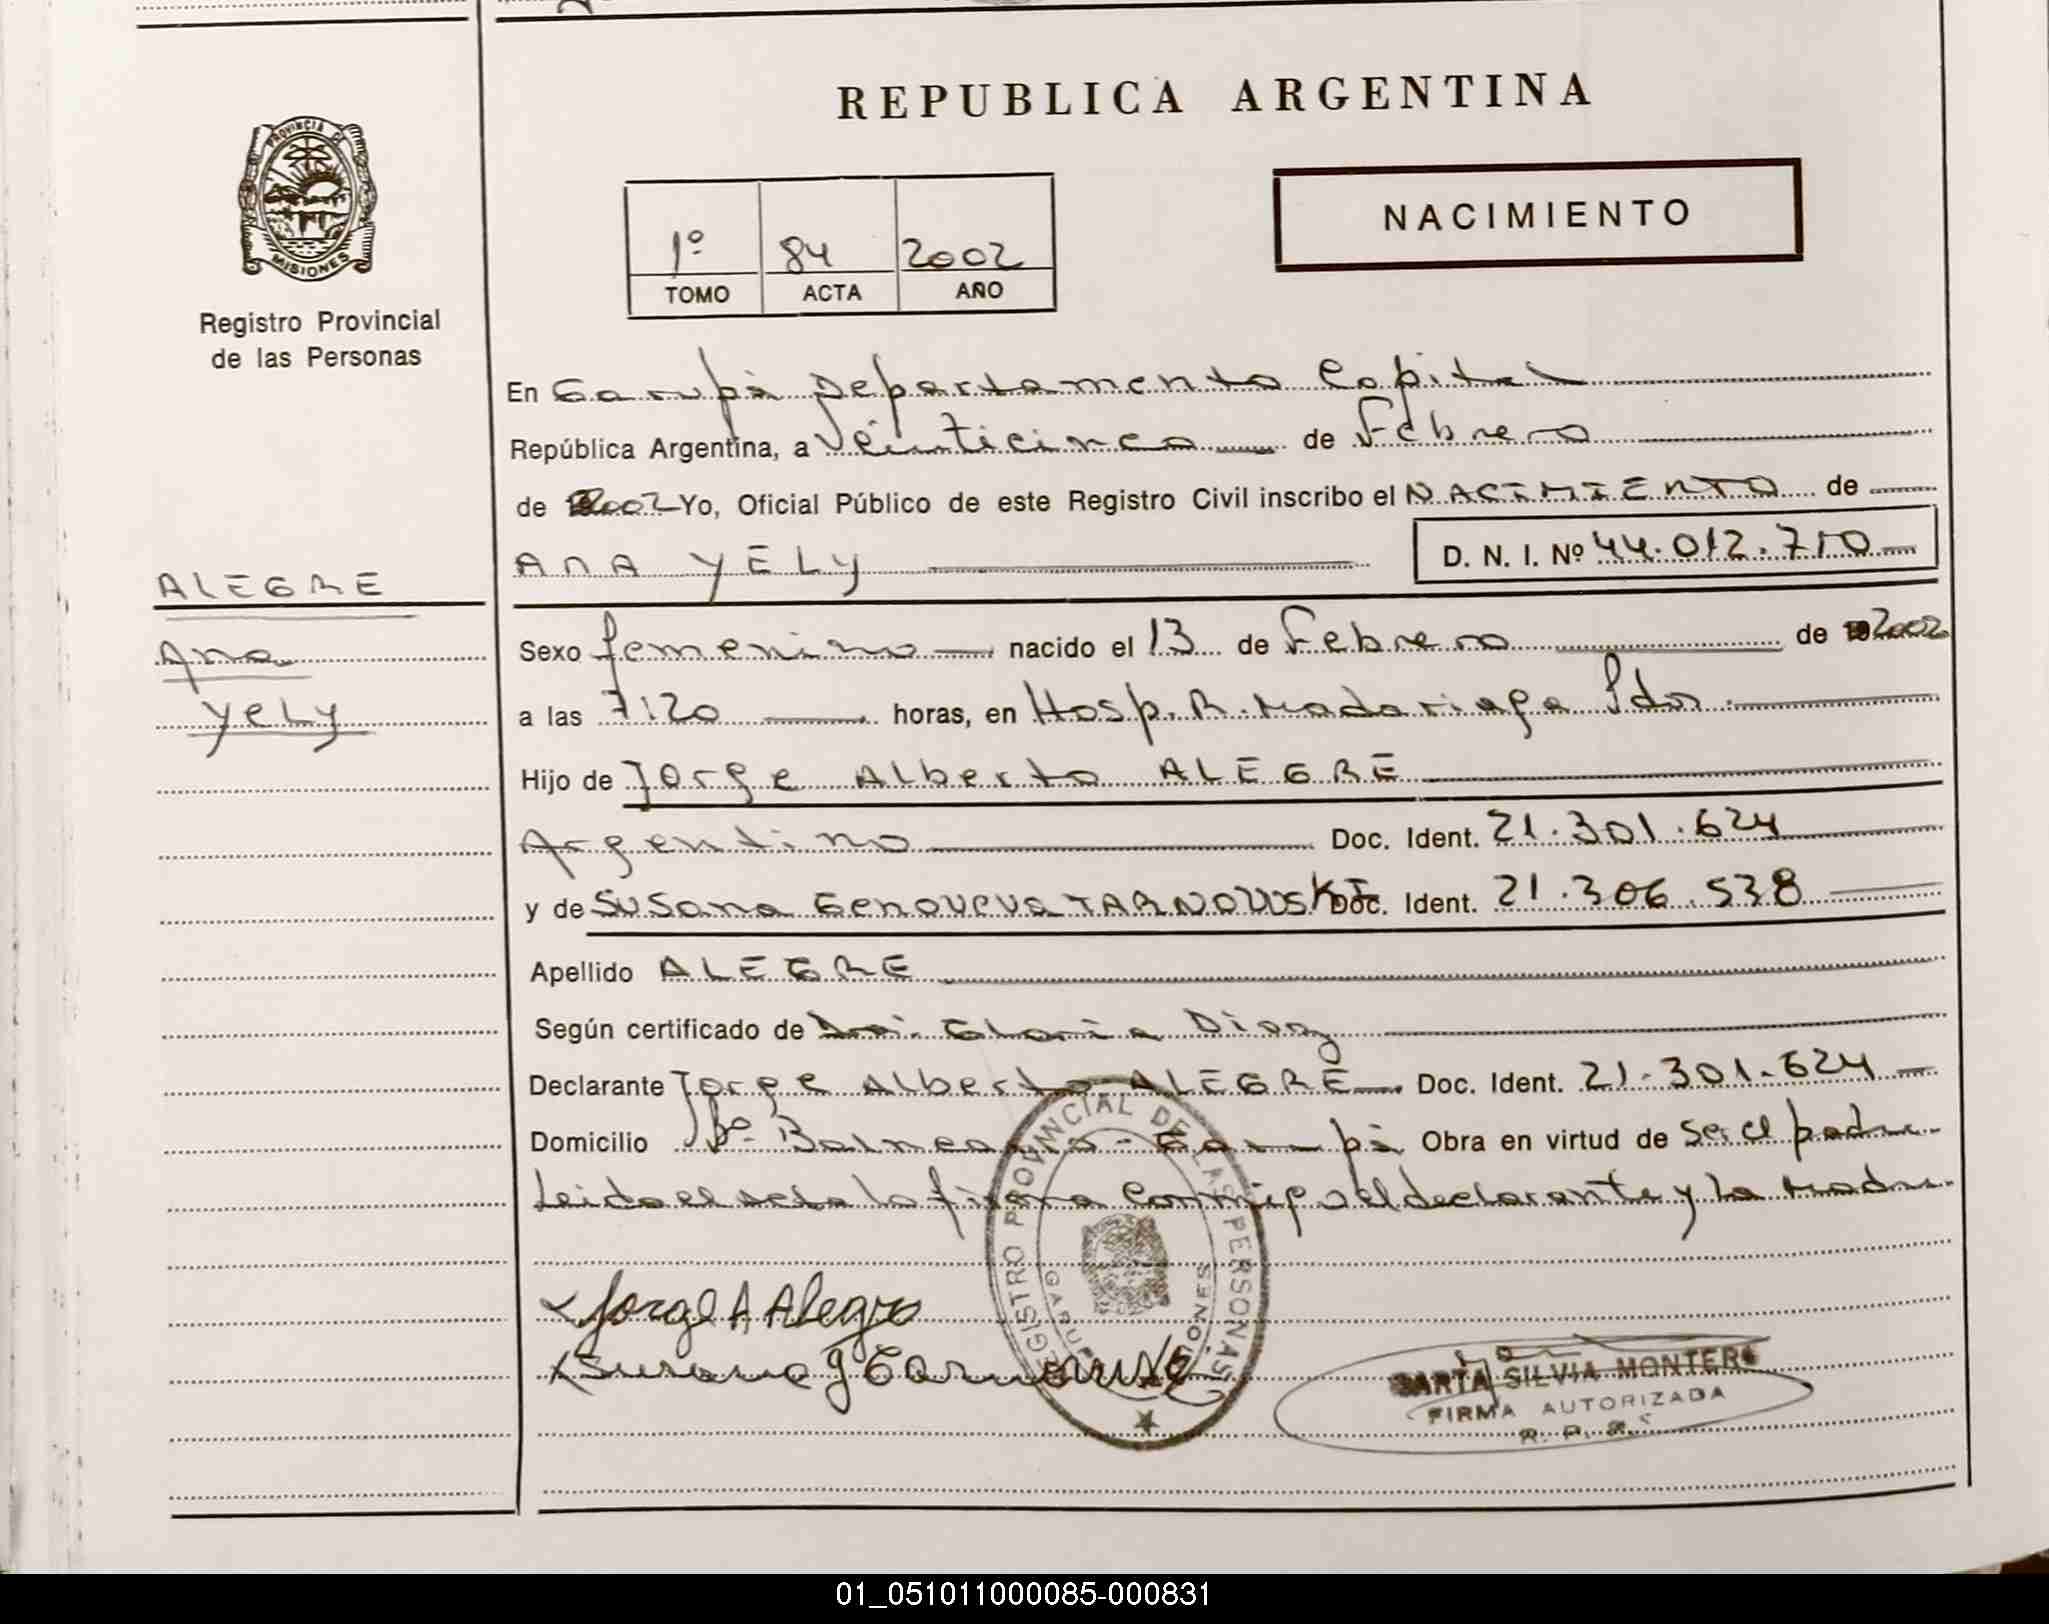 REPUBLICA ARGENTINA
PROVINCIA DE
MISIONES
Registro Provincial
de las Personas
1º 84 2002
TOMO ACTA AÑO
NACIMIENTO
En Garupá Departamento Capital
República Argentina, a Veinticinco de Febrero
de 2002 Yo, Oficial Público de este Registro Civil inscribo el NACIMIENTO de
ANA YELY D. N. I. Nº 44.012.710
ALEGRE
Ana
Yely
Sexo femenino nacido el 13 de Febrero de 2002
a las 7:20 horas, en Hosp. R. Madariaga Pdas.
Hijo de Jorge Alberto ALEGRE
Argentino Doc. Ident. 21.301.624
y de SUSana Genoveva TARNOWSKI Doc. Ident. 21.306.538
Apellido ALEGRE
Según certificado de Dra. Gloria Diaz
Declarante Jorge Alberto ALEGRE Doc. Ident. 21.301.624
Domicilio Bº Balneario - Garupá Obra en virtud de ser el padre
Leida el acta la firma conmigo el declarante y la Madre
REGISTRO PROVINCIAL DE LAS PERSONAS
GARUPA
MISIONES
Jorge A Alegre
Susana G Tarnowski
SARTA SILVIA MONTERO
FIRMA AUTORIZADA
R. P.
01_051011000085-000831